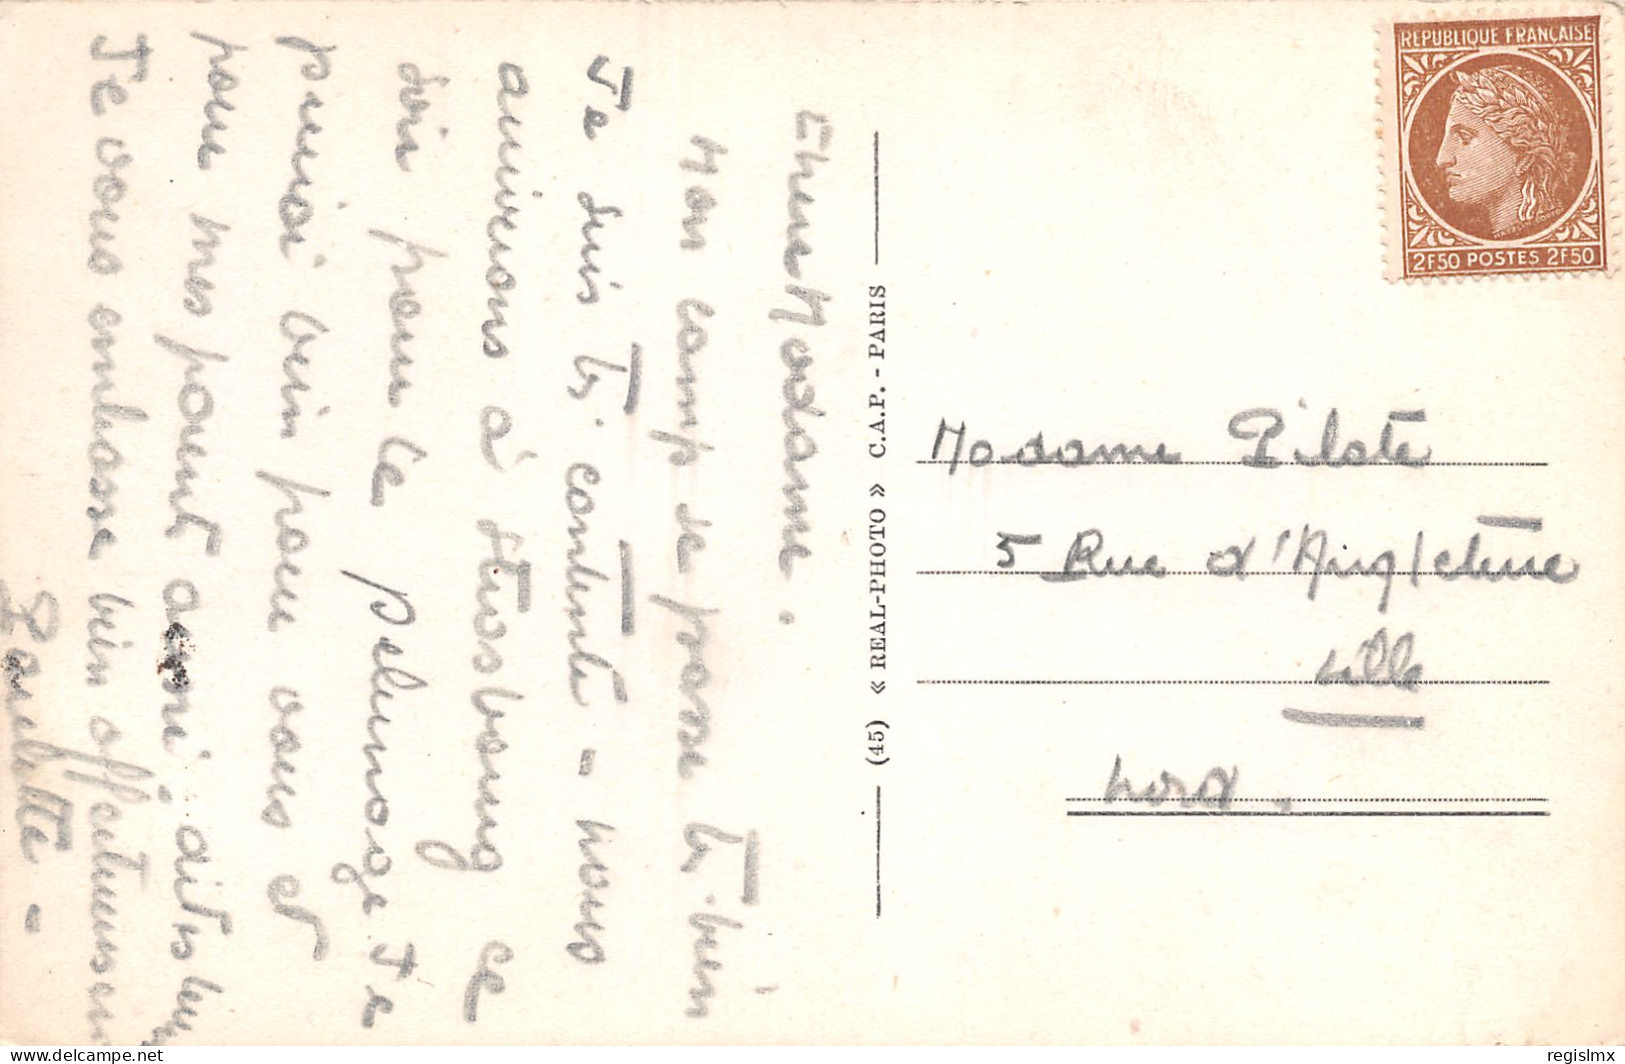 Chere Madame.
Mon camp se passe tr. bien
Je suis tr. contente = nous
arriverons à Strasbourg ce
soir pour le pelerinage Je
prierai bien pour vous et
pour mes parents aussi, dites leur
Je vous embrasse bien affectueusement
=
(45) « REAL-PHOTO » C.A.P. - PARIS
REPUBLIQUE FRANÇAISE
2F50 POSTES 2F50
Madame Pilate
5 Rue d'Angleterre
Lille
Nord.
Delcampe.net
regislmx